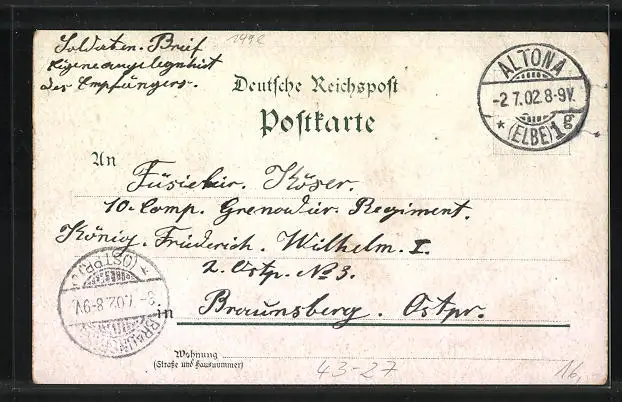 Soldaten-Brief
Eigene angelegenheit
des Empfängers.
1492
Deutsche Reichspost
Postkarte
ALTONA
-2 7.02.8-9V.
* (ELBE) 1g
An Füsielier. Köser.
10. Comp. Grenadier. Regiment.
König. Friederich. Wilhelm. I.
2. Ostp. No 3.
in Braunsberg. Ostpr.
BRAUNSBERG
3- 7.02.8-9V.
* (OSTPR)
Wohnung
(Straße und Hausnummer)
43-27
16,-